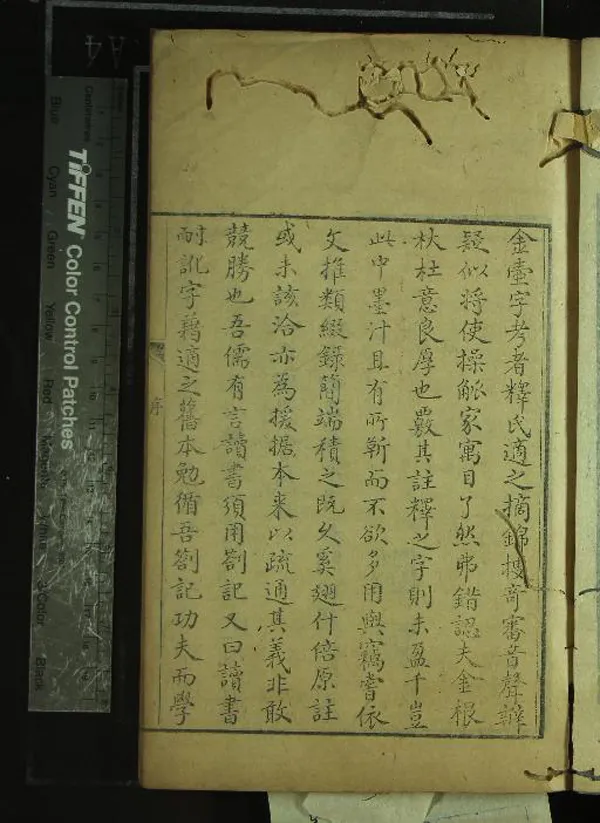 金壷字考者釋氏適之摘錦搜竒審音聲辨
疑似將使操觚家寓目了然弗錯認夫金根
杕杜意良厚也覈其註釋之字則未盈千豈
此中墨汁且有所靳而不欲多用與竊嘗依
文推類綴錄簡端積之既久奚翅什倍原註
或未該洽亦為援据本来以疏通其義非敢
競勝也吾儒有言讀書須用劄記又曰讀書
耐訛字藉適之舊本勉循吾劄記功夫而學
序
A4
TIFFEN Color Control Patches
Centimetres
Blue
Cyan
Green
Yellow
Red
Magenta
White
3/Color
Black